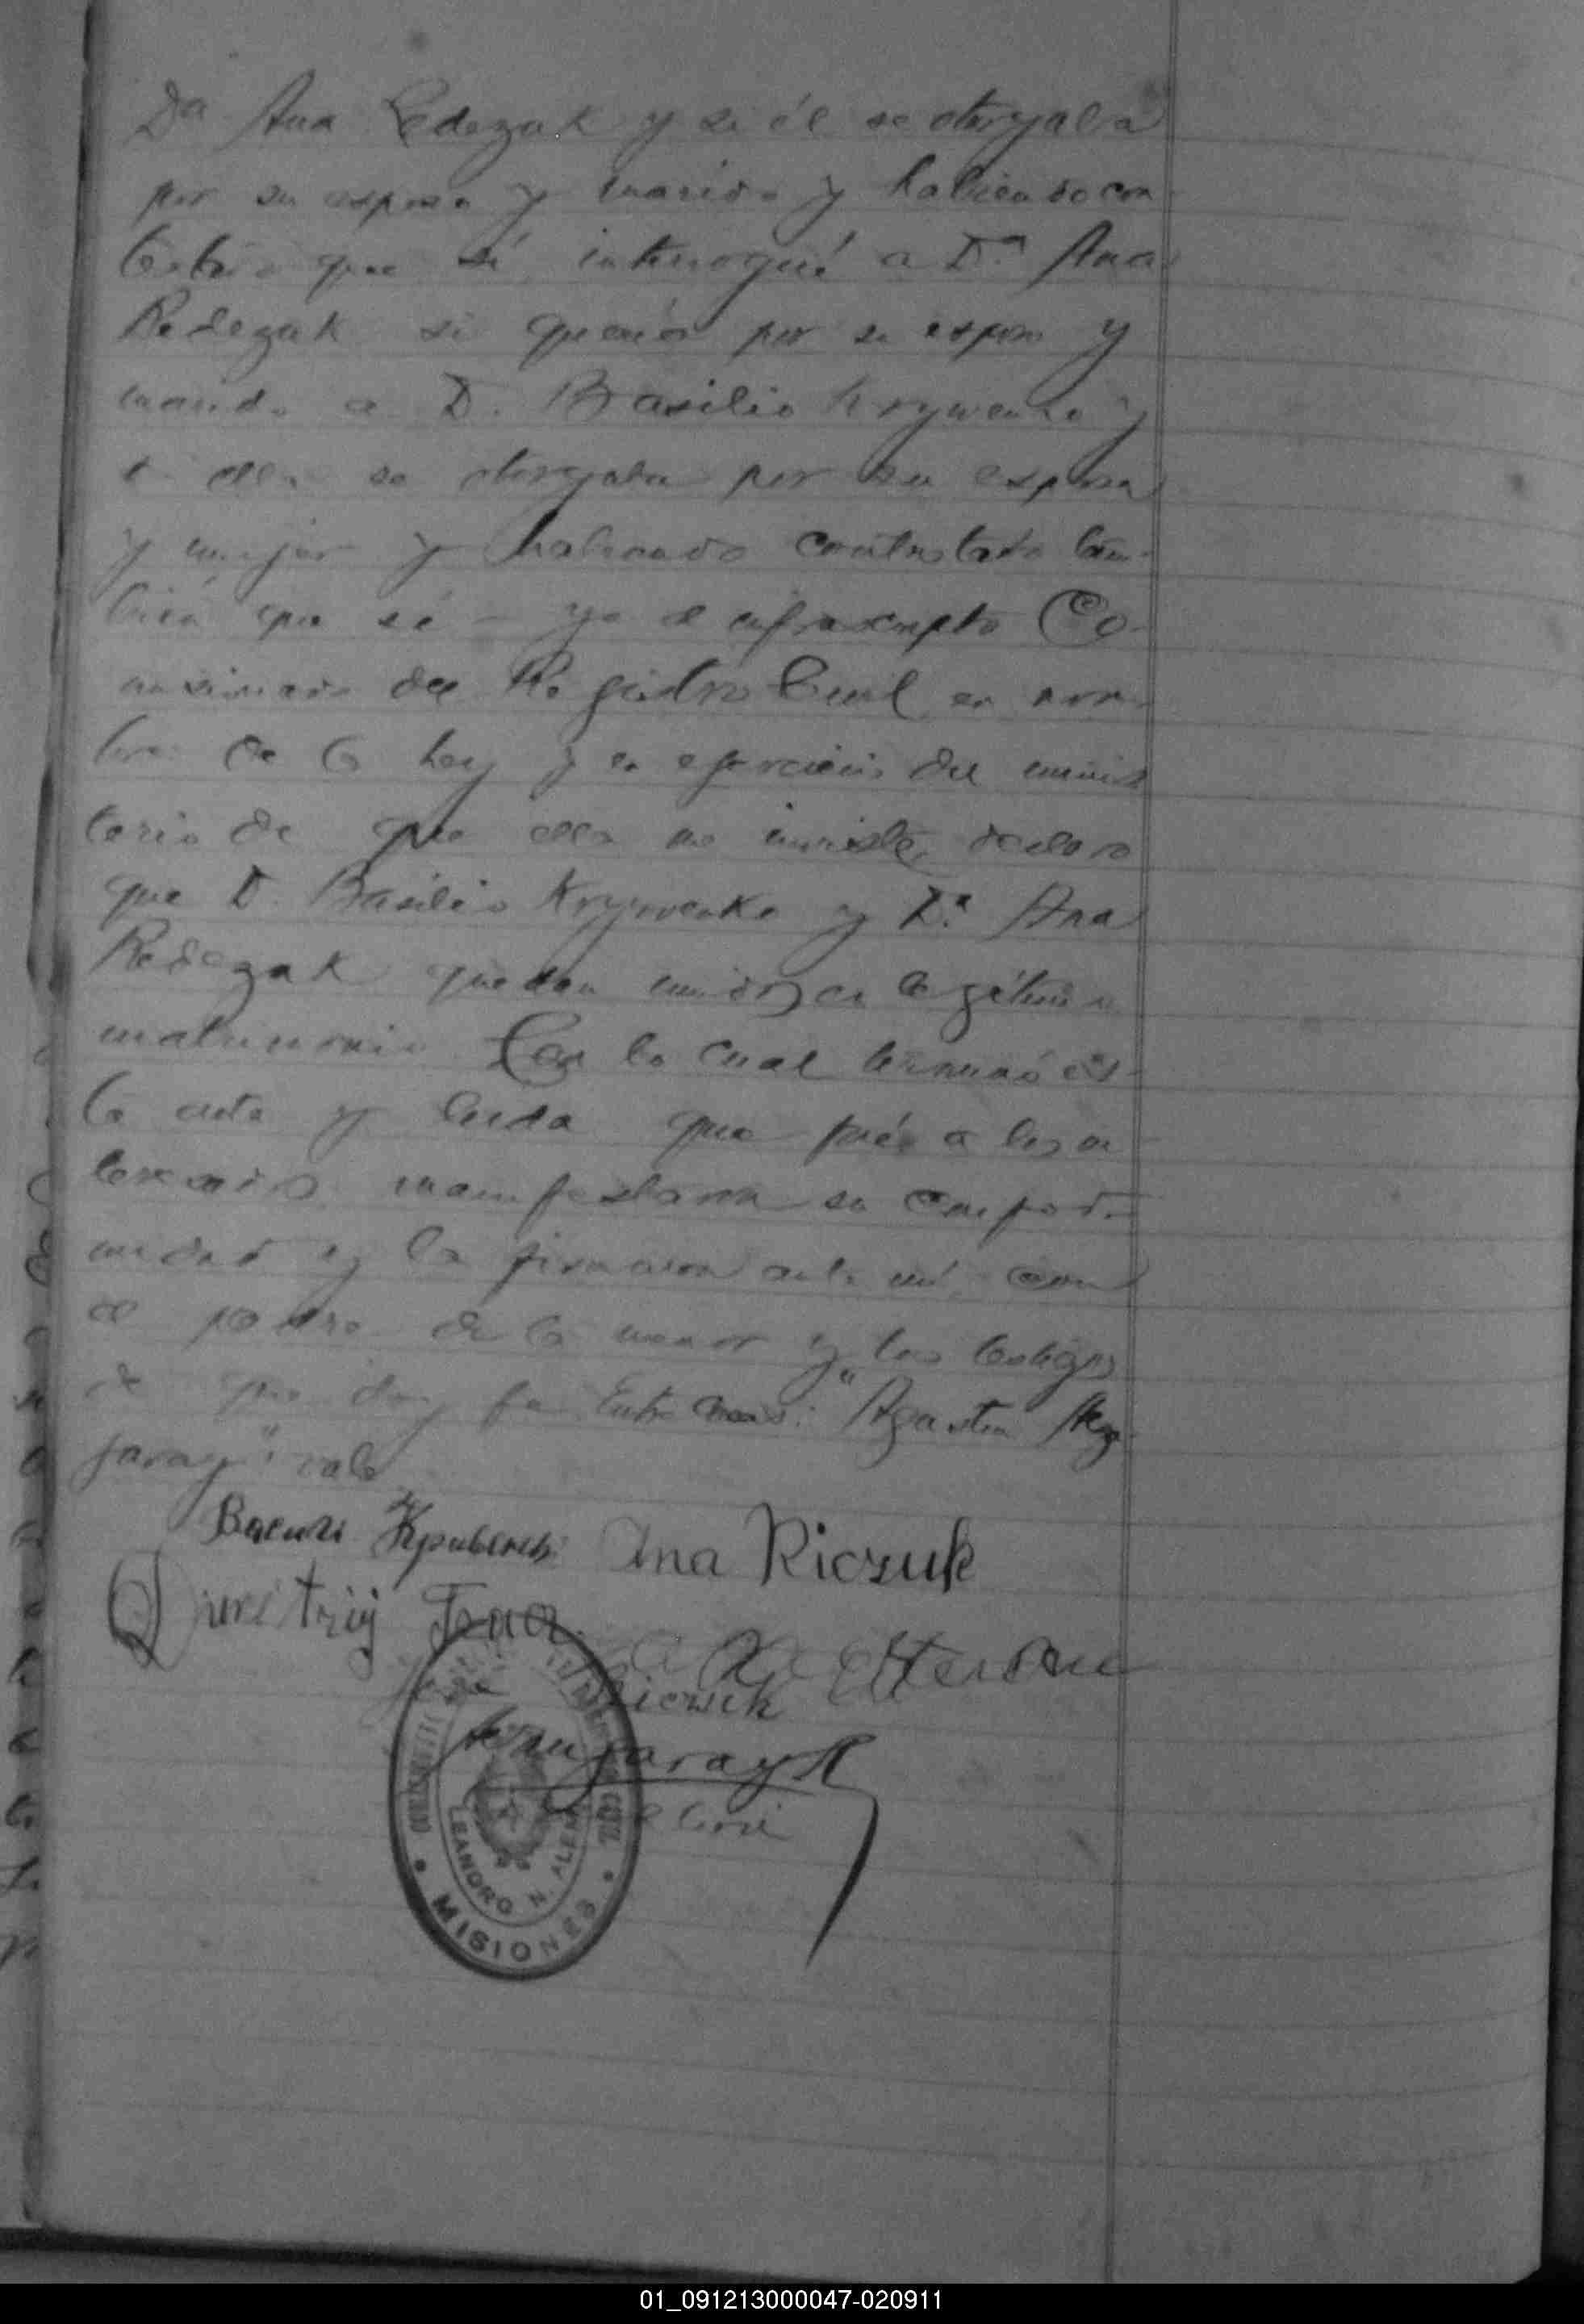 Da Ana Redezuk y si él se otorgaba
por su esposo y marido y habiendo con-
testado que sí interrogué a D.ª Ana
Redezuk si quería por su esposo y
marido a D. Basilio Krywenko y
si ella se otorgaba por su esposa
y mujer y habiendo contestado tam-
bién que sí – yo el infrascripto Co-
misionado del Registro Civil en nom-
bre de la Ley y en ejercicio del minis
terio de que ella me inviste, declaro
que D. Basilio Krywenko y D.ª Ana
Redezuk quedan unidos en legítimo
matrimonio Con lo cual terminó es-
ta acta y leida que fué a los in-
teresados manifestaron su confor-
midad y la firmaron ante mí, con
el padre de la menor y los testigos
de que doy fe Entre líneas: "Agustin Aza
garay": vale
Василь Кривенко Ana Riczuk
Dmitrij
Riczuk
garay
MISIONES
LEANDRO N. ALEM
01_091213000047-020911